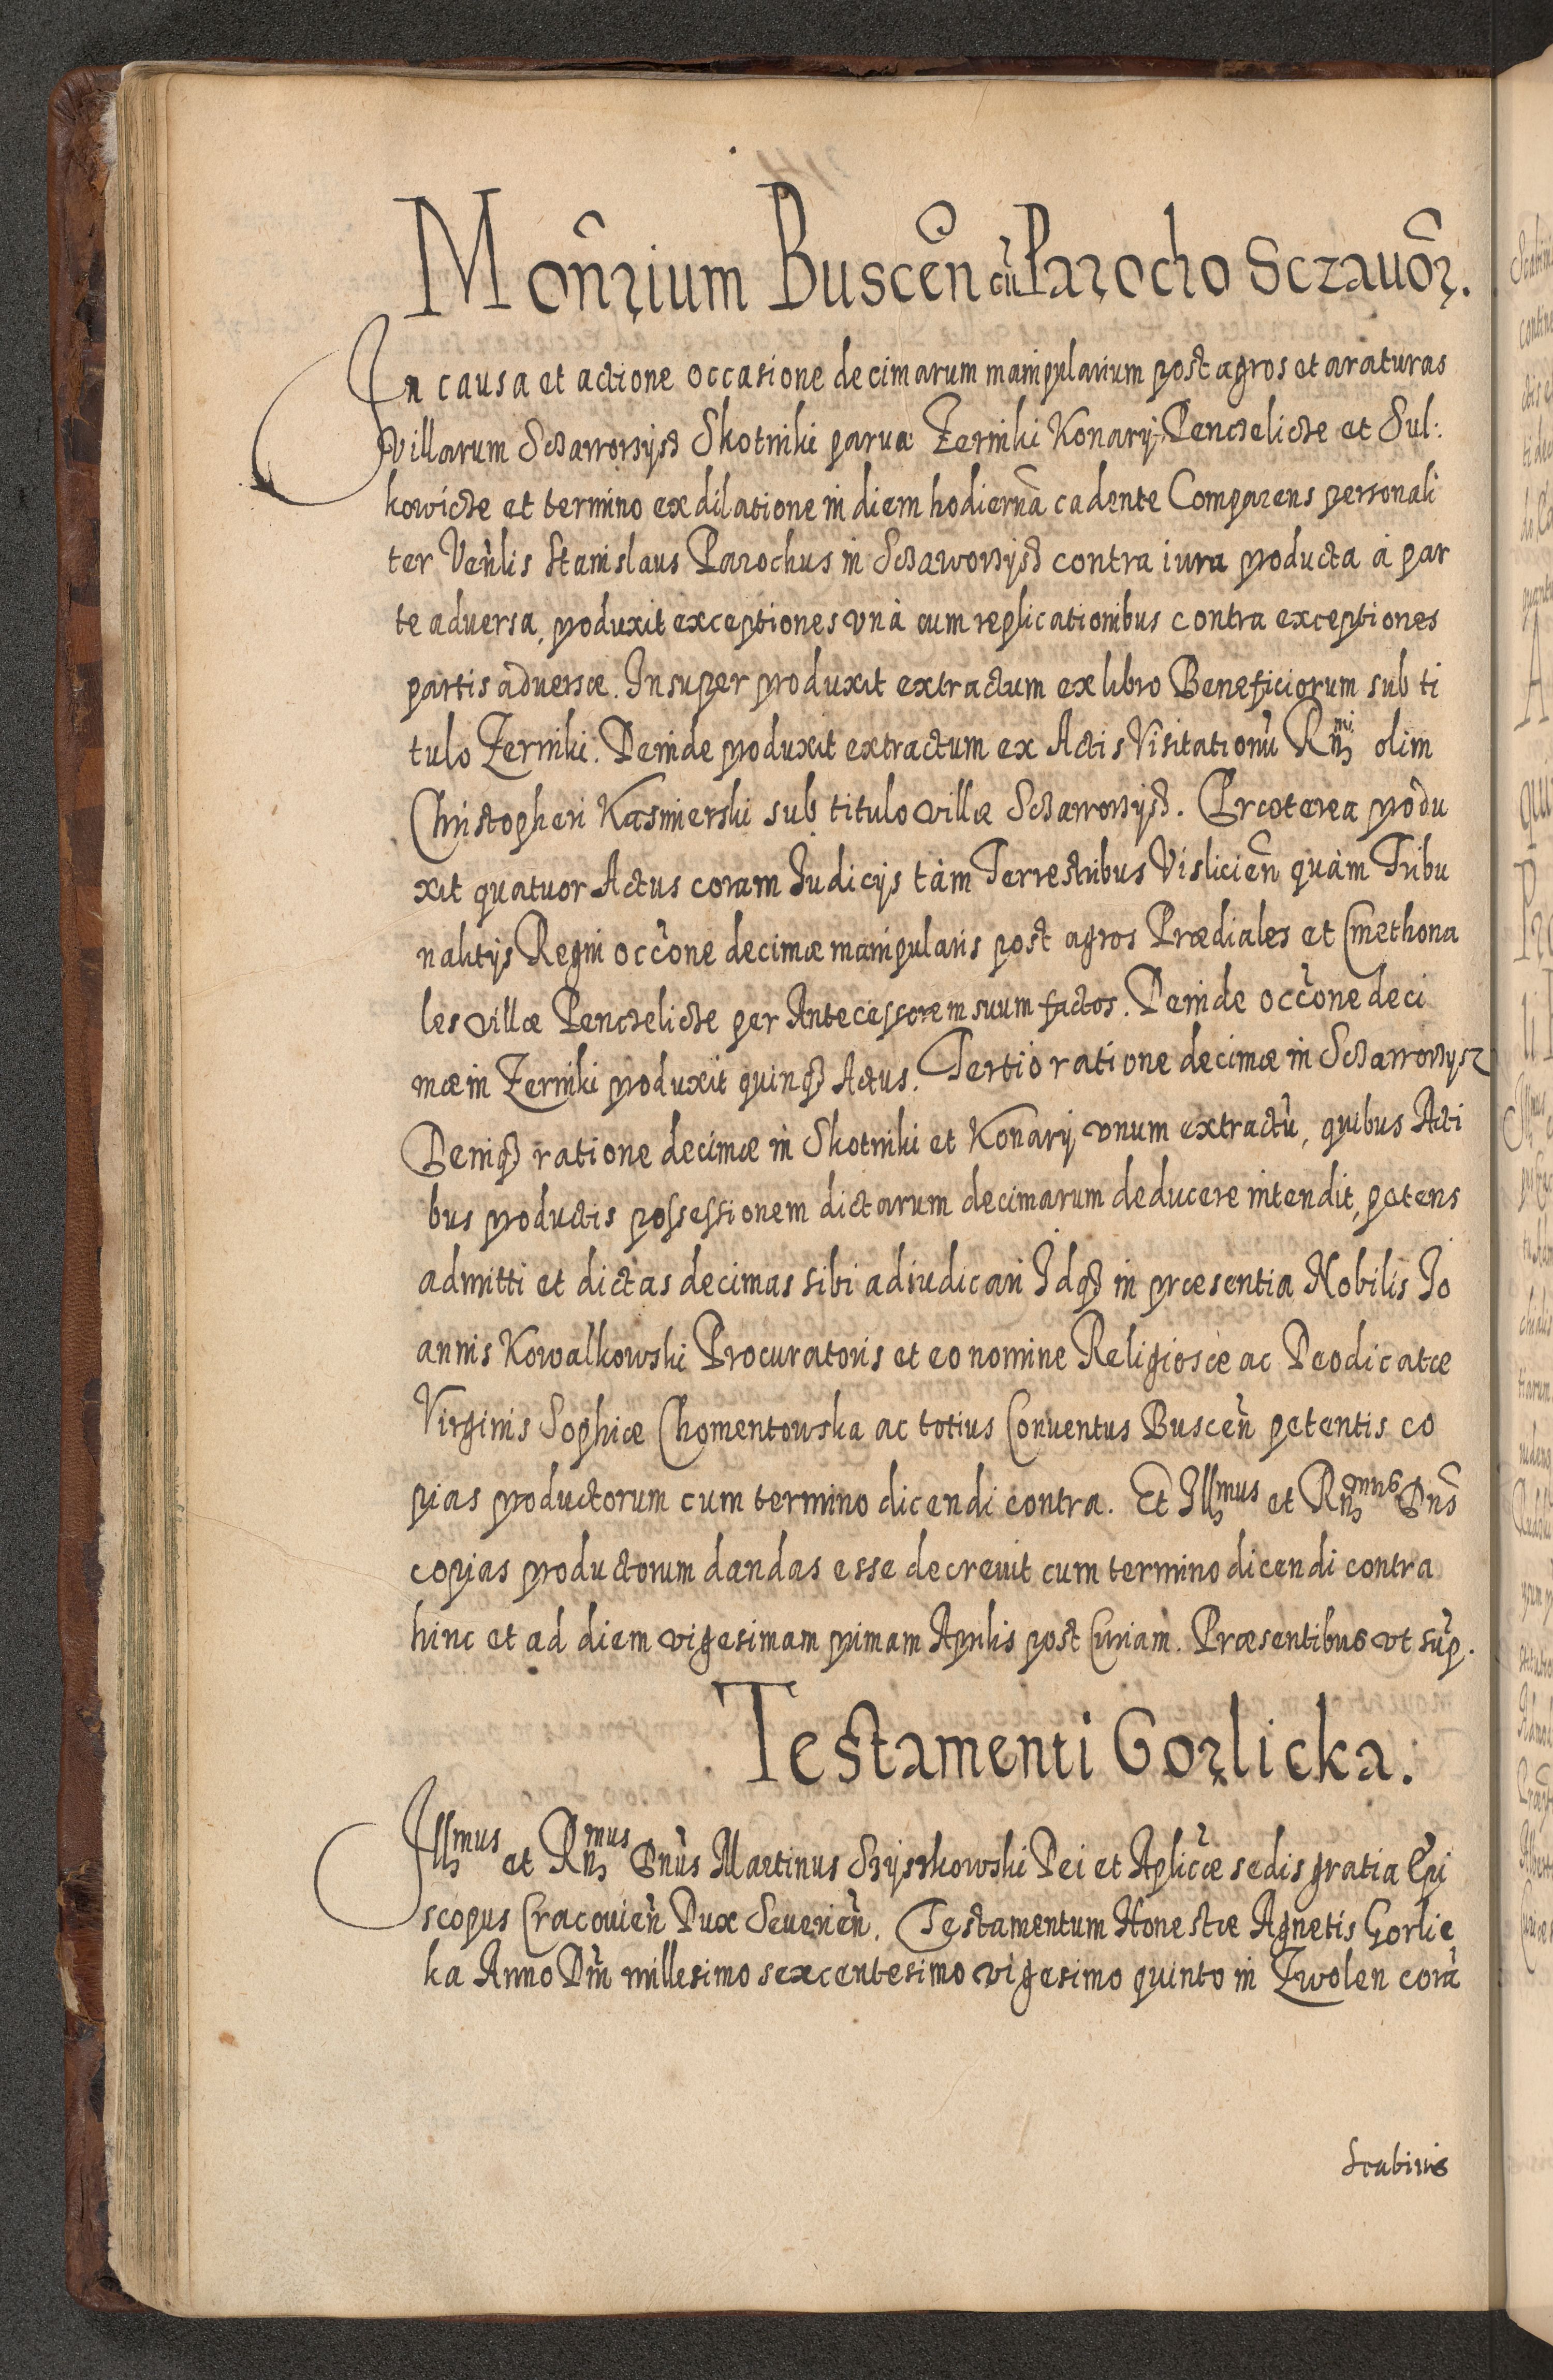 Mon̄rium Buscen̄ cū Parocho Sczauor̄.
In causa et actione occasione decimarum manipularium post agros et araturas
villarum Sczaworysz Skotniki parua Zerniki Konary Penczelicze et Sul:
kowicze et termino ex dilatione in diem hodiernā cadente Comparens personali
ter Venlis Stanislaus Parochus in Sczaworysz contra iura producta à par
te aduersa, produxit exceptiones vnà cum replicationibus contra exceptiones
partis aduersæ. Insuper produxit extractum ex libro Beneficiorum sub ti
tulo Zerniki. Deinde produxit extractum ex Actis Visitationū Rn̄mi olim
Christopheri Kasmierski sub titulo villæ Sczaworysz. Præterea produ
xit quatuor Actus coram Judicijs tàm Terrestribus Vislicien̄ quàm Tribu
nalitijs Regni occōne decimæ manipularis post agros Prædiales et Cmethona
les villæ Penczelicze per Antecessorem suum factos. Deinde occōne deci
mæ in Zerniki produxit quinqз Actus. Tertio ratione decimæ in Sczaworysz
Deniqз ratione decimæ in Skotniki et Konary vnum extractū, quibus Acti
bus productis possessionem dictarum decimarum deducere intendit, petens
admitti et dictas decimas sibi adiudicari Idqз in præsentia Nobilis Jo
annis Kowalkowski Procuratoris et eo nomine Religiosæ ac Deodicatæ
Virginis Sophiæ Chomentowska ac totius Conuentus Buscen̄ petentis co
pias productorum cum termino dicendi contra. Et Illmus et Rn̄mus Dn̄s
copias productorum dandas esse decreuit cum termino dicendi contra
hinc et ad diem vigesimam primam Aprilis post Curiam. Præsentibus vt sup̄.
Testamenti Gorlicka.
Illmus et Rn̄mus Dn̄us Martinus Szyszkowski Dei et Aplicæ sedis gratia Epi
scopus Cracouien̄ Dux Seuerien̄. Testamentum Honestæ Agnetis Gorlic
ka Anno Dn̄i millesimo sexcentesimo vigesimo quinto in Zwolen corā
Scabinis